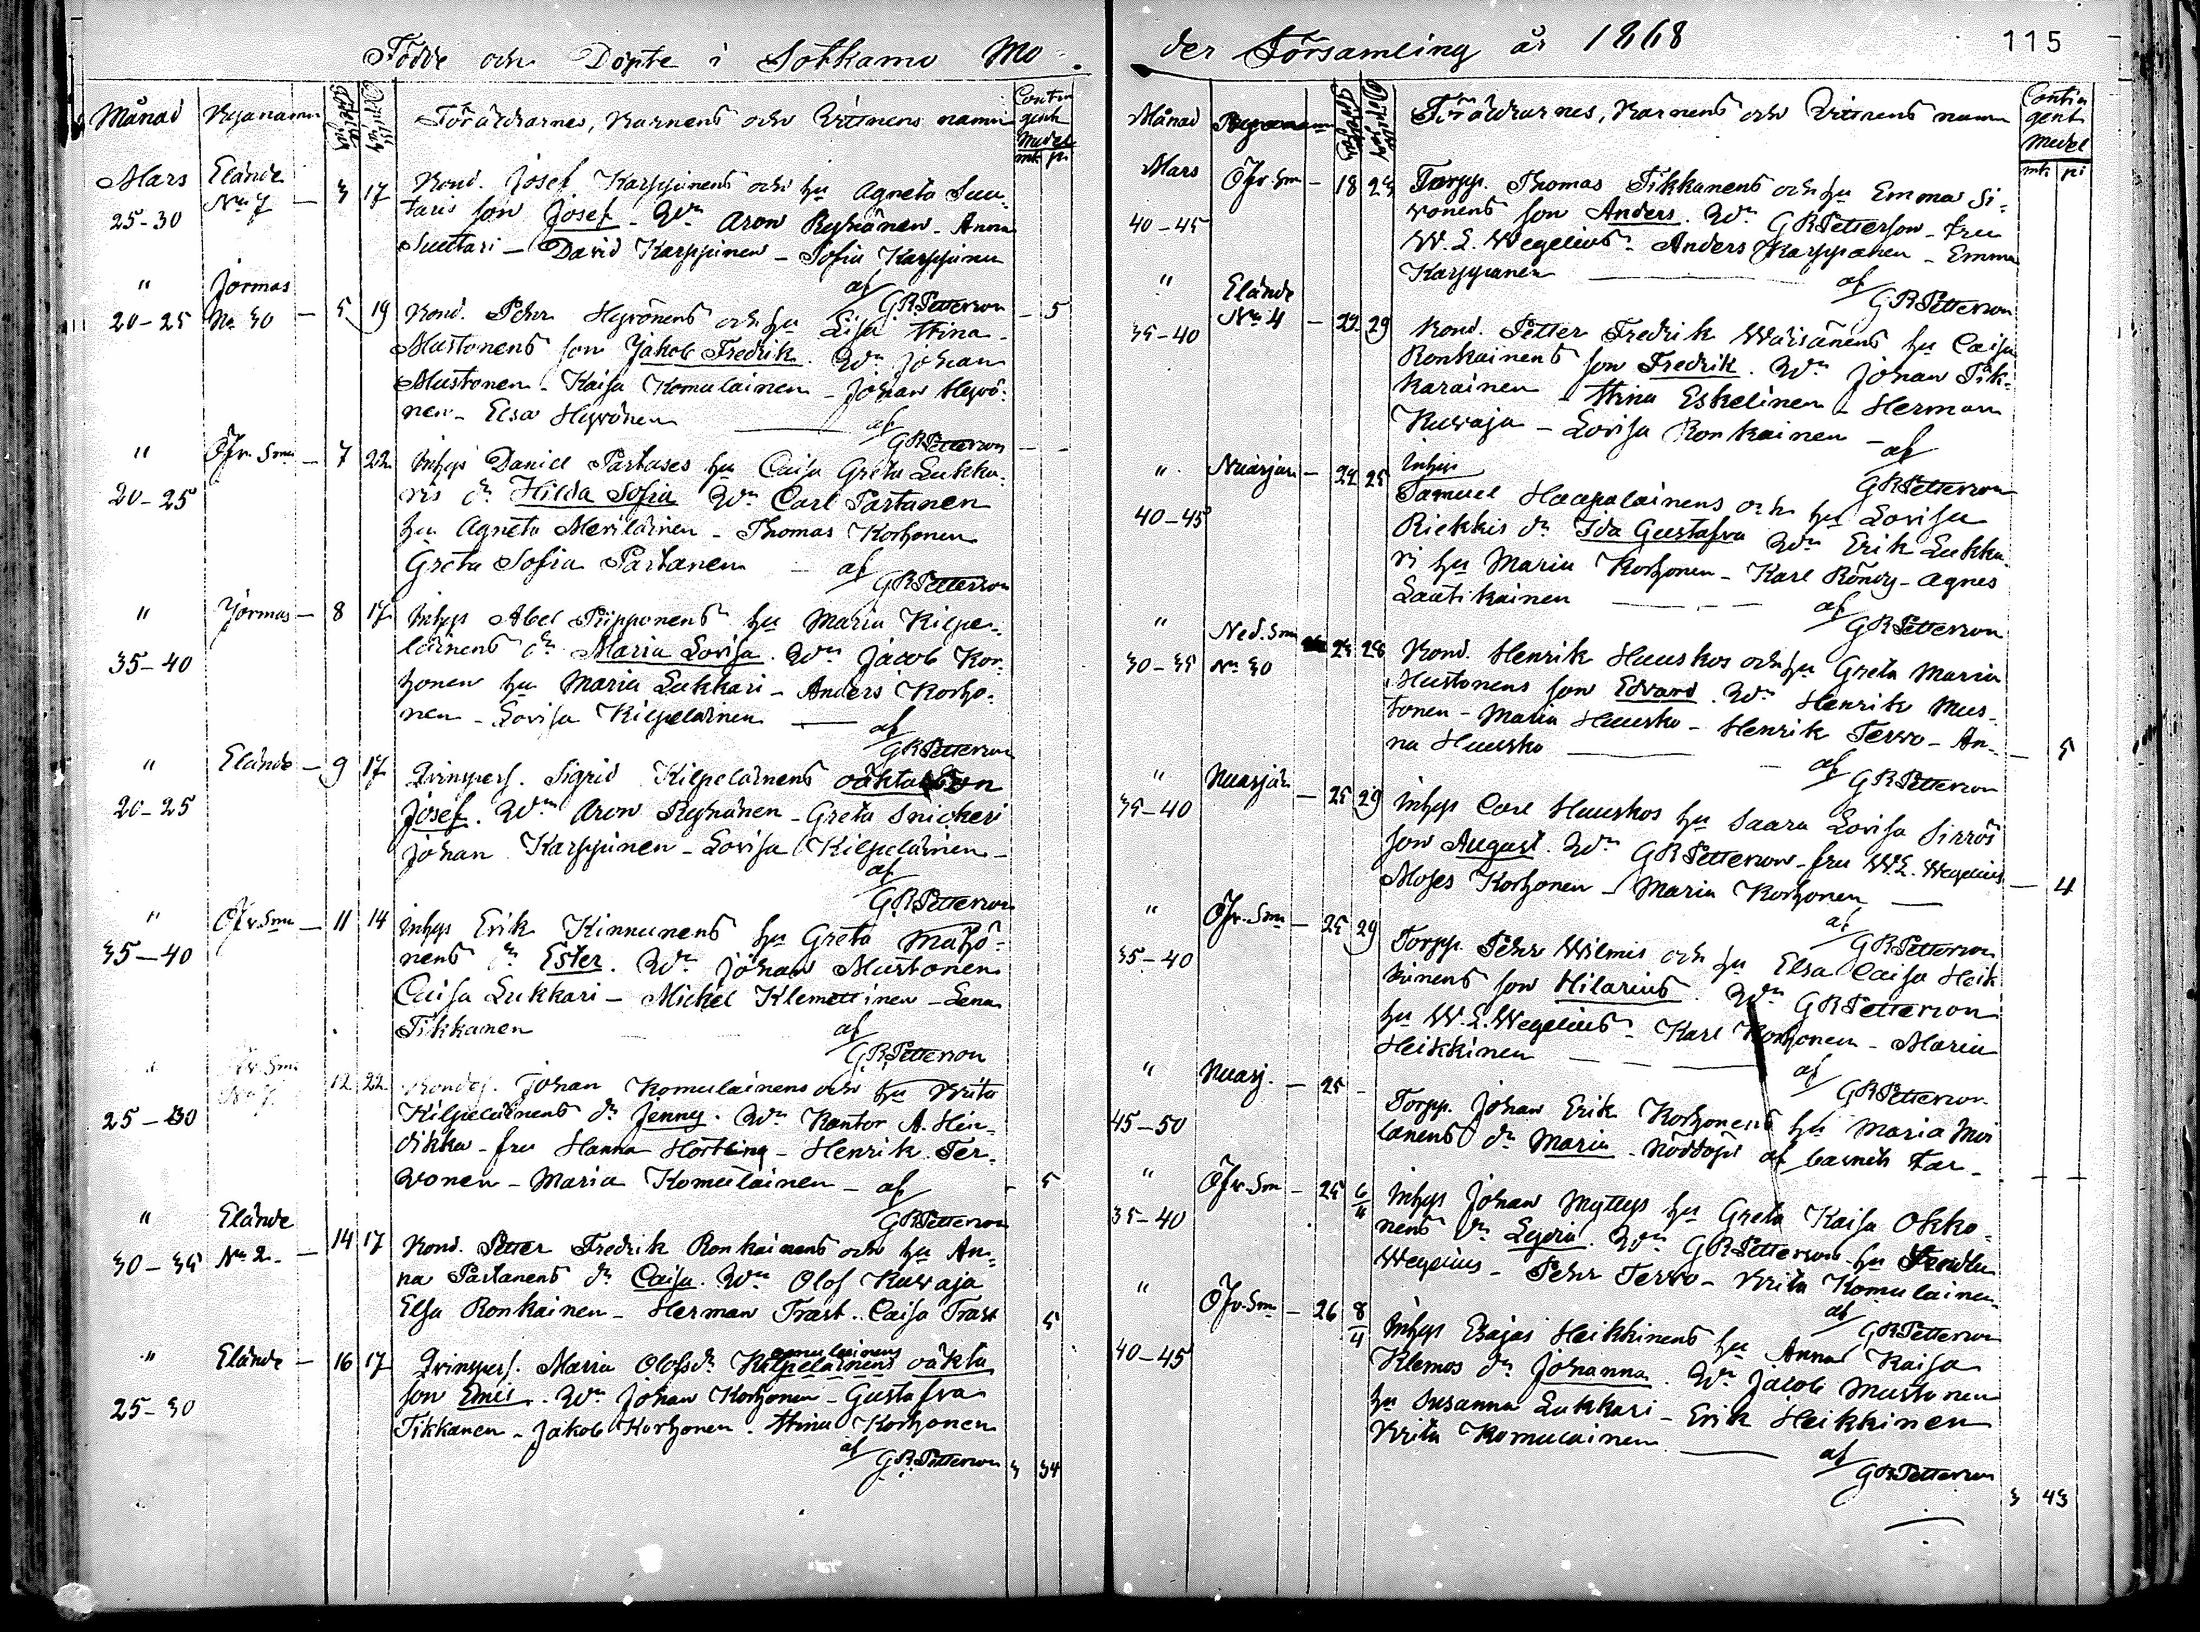 Födde och Döpte i Sotkamo Mo
Månad Byanamn Föräldrarnes, Barnens och Vittnens namn Contin
gent
Medel
mk pi
Mars Elände 3 17 Bond. Josef Karppinens och hu Agneta Suu-
25-30 No 7 taris son Josef. Wn Aron Ryhänen - Anna
Suutari - David Karppinen - Sofia Karppinen
af G R Petterson
" Jormas 5 19 Bond. Pehr Hyvönens och hu Lisa Stina 5
20-25 No 30 Mustonens son Jakob Fredrik. Wn Johan
Mustonen - Kaisa Komulainen - Johan Hyvö-
nen - Elsa Hyvönen
af G R Petterson
" Öfv. Smo 7 22 Inhys Daniel Partases hu Caisa Greta Lukka-
20-25 ris dr Hilda Sofia Wn Carl Partanen
hu Agneta Meriläinen - Thomas Korhonen
Greta Sofia Partanen
af G R Petterson
" Jormas 8 17 Inhys Abel Piipponens hu Maria Kilpe-
35-40 läinens dr Maria Lovisa. Wn Jacob Kor-
honen hu Maria Lukkari - Anders Korho-
nen - Lovisa Kilpeläinen
af G R Petterson
" Elände 9 17 Qvinspers. Sigrid Kilpeläinens oäkta son
20-25 Josef. Wn Aron Ryhänen - Greta Snickeri
Johan Karppinen - Lovisa Kilpeläinen -
af G R Petterson
" Öfv. Smo 11 14 Inhys Erik Kinnunens hu Greta Mähö-
35-40 nens dr Ester. Wn Johan Mustonen
Caisa Lukkari - Mickel Klemettinen - Lena
Tikkanen
af G R Petterson
" Öfv. Smo 12 22 Bondes. Johan Komulainens och hu Brita
25-30 Kilpeläinens dr Jenny. Wn Kantor A. Hen-
dikka - fru Hanna Hortling - Henrik Ter-
vonen - Maria Komulainen - af 5
G R Petterson
" Elände 14 17 Bond. Petter Fredrik Ronkainens och hu An-
30-35 No 2. na Partanens dr Caisa. Wn Olof Kuvaja
Elsa Ronkainen - Herman Trast. Caisa Trast 5
" Elände 16 17 Qvinspers. Maria Olofsdr Kilpeläinens omulainens oäkta
25-30 son Emil. Wn Johan Korhonen - Gustafva
Tikkanen - Jakob Korhonen. Stina Korhonen
af G R Petterson 3 34
der Församling år 1868 115
Månad Byanamn Föräldrarnes, Barnens och Vittnens namn Contin
gent
Medel
mk pi
Mars Öfv. Sm 18 23 Torpp. Thomas Tikkanens och hu Emma Si-
40-45 vonens son Anders. Wn G R Petterson - fru
W. L. Wegelius. Anders Karppanen - Emma
Karppanen
af G R Petterson
" Elände 22 29 Bond. Petter Fredrik Wäisänens hu Caisa
35-40 No 4 Ronkainens son Fredrik. Wn Johan Tik-
karainen - Stina Eskelinen - Herman
Kuvaja - Lovisa Ronkainen -
af G R Petterson
" Nuasjärvi 22 25 Inhys
40-45 Samuel Haapalainens och hu Lovisa
Riekkis dr Ida Gustafva Wn Erik Lukka-
ri hu Maria Korhonen - Karl Röndy - Agnes
Lautikainen
af G R Petterson
" Ned. Smo 23 28 Bond. Henrik Huuskos och hu Greta Maria
30-35 No 30 Mustonens son Edvard. Wn Henrik Mus-
tonen - Maria Huusko - Henrik Tervo - An-
na Huusko 5
af G R Petterson
" Nuasjär 25 29 Inhys Carl Huuskos hu Saara Lovisa Sirviös
35-40 son August. Wn G R Petterson - fru W. L. Wegelius
Moses Korhonen - Maria Korhonen 4
af G R Petterson
" Öfv. Smo 25 29 Torpp. Pehr Wilmis och hu Elsa Caisa Heik
35-40 kinens son Hilarius. Wn G R Petterson
hu W. L. Wegelius. Karl Korhonen - Maria
Heikkinen
af G R Petterson
" Nuasj. 25 - Torpp. Johan Erik Korhonens hu Maria Moi
45-50 lanens dr Maria. Nöddöpt af barnets far -
" Öfv. Sm 25 6/4 Inhys Johan Myllys hu Greta Kaisa Okko-
35-40 nens dr Lydia. Wn G R Petterson hu
Wegelius - Pehr Tervo - Brita Komulainen
af G R Petterson
" Öfv. Sm 26 8/4 Inhys Esajas Heikkinens hu Anna Kaisa
40-45 Klemos dr Johanna. Wn Jacob Mustonen
hu Susanna Lukkari - Erik Heikkinen
Brita Komulainen
af G R Petterson
3 43